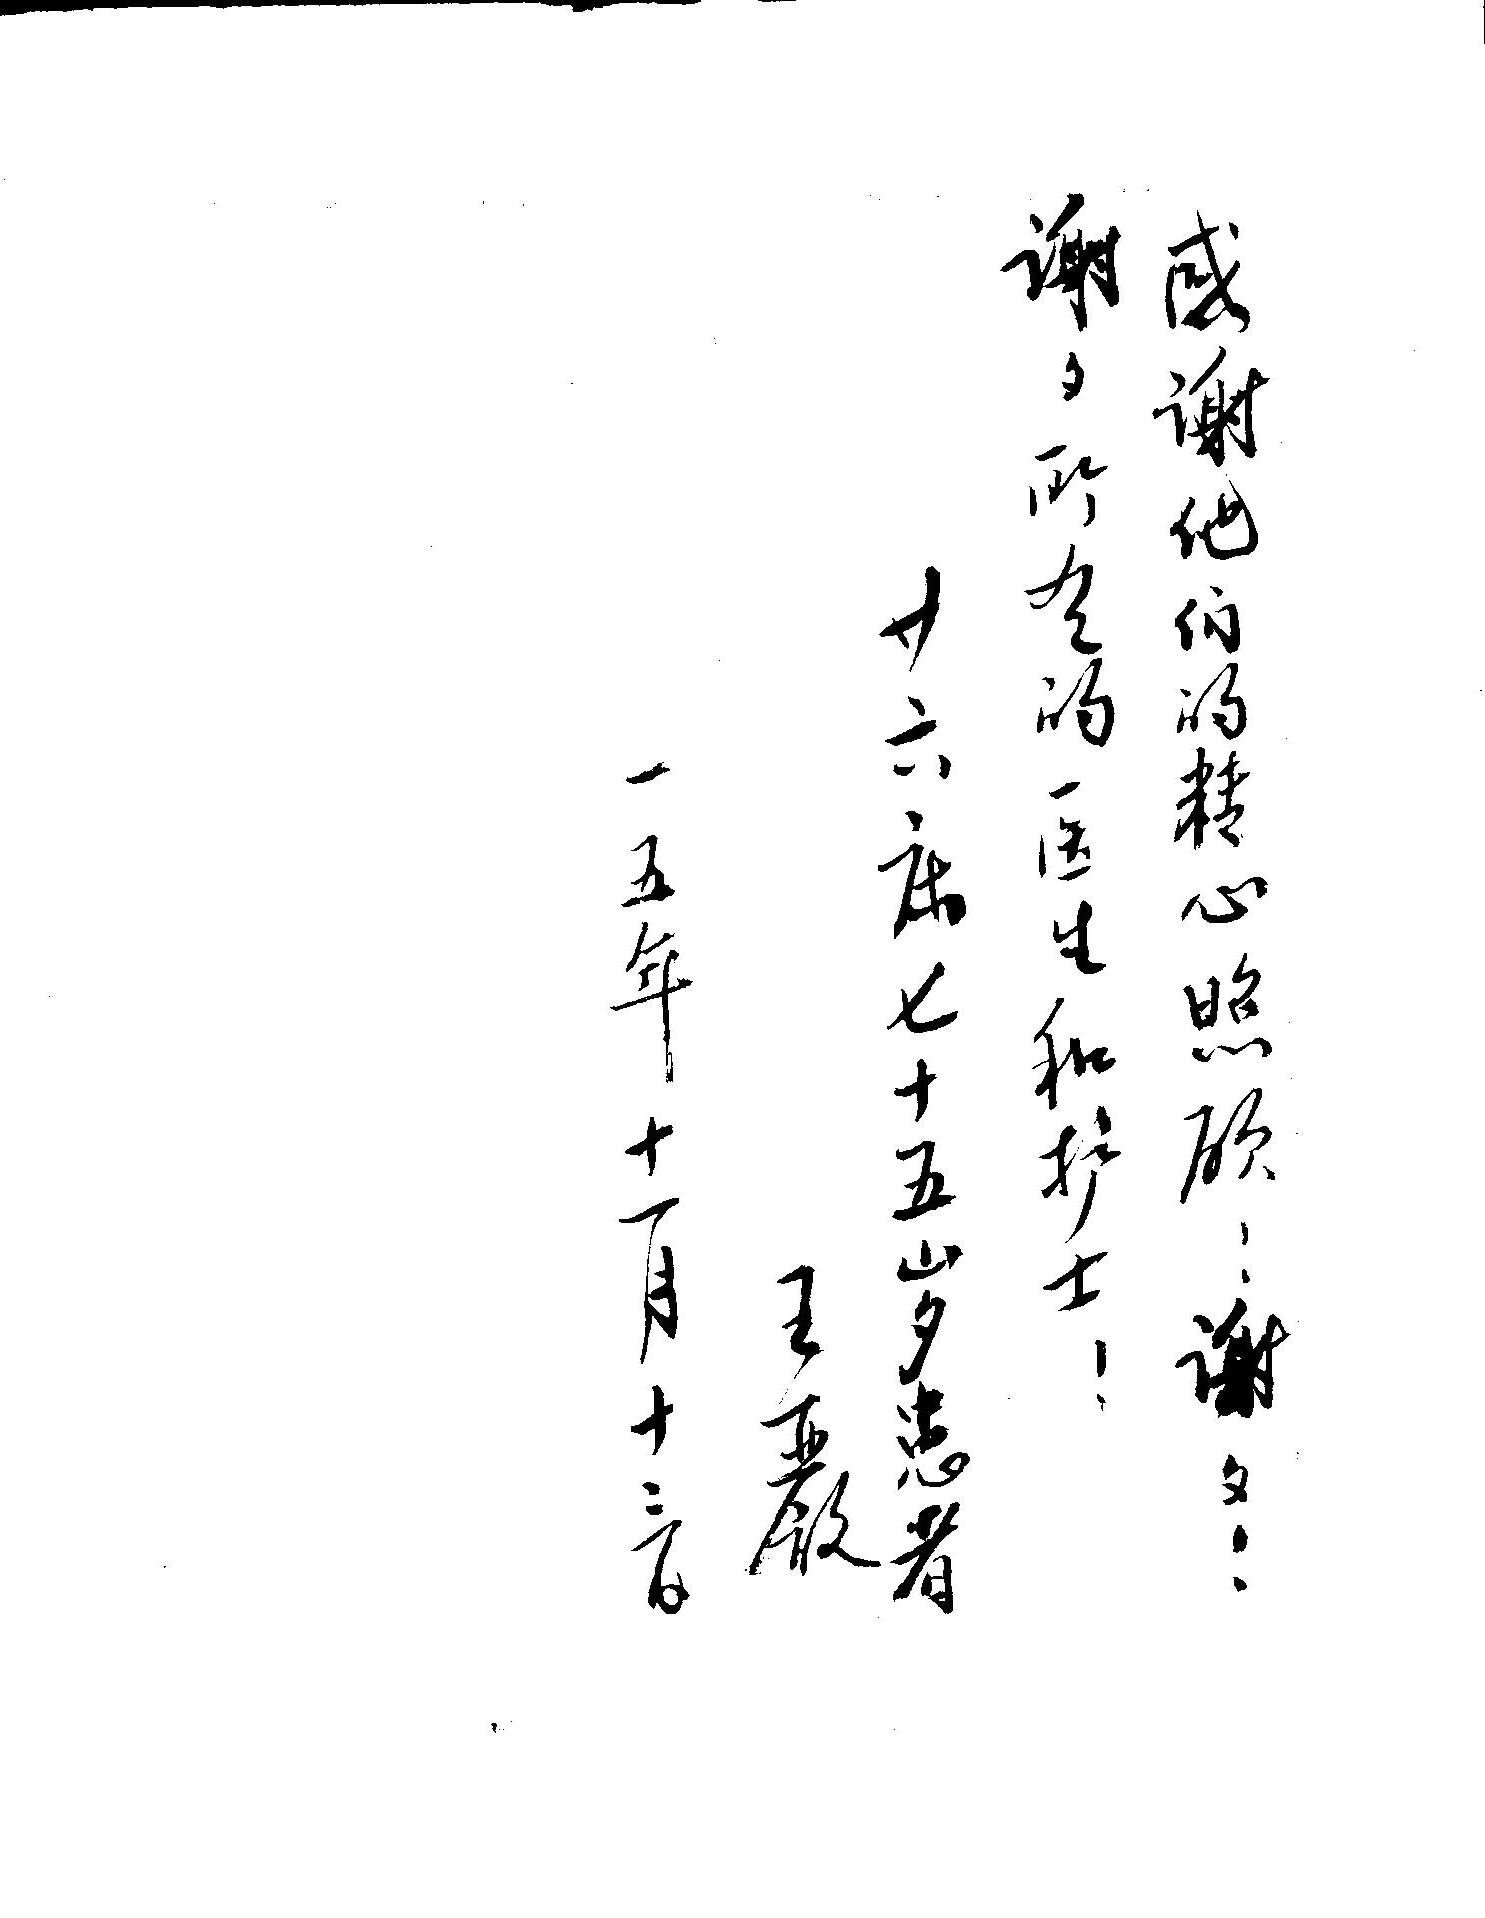 感谢他们的精心照顾！谢々！
谢々所有的医生和护士！
廿六床七十五岁患者
王严
一五年十一月十三日